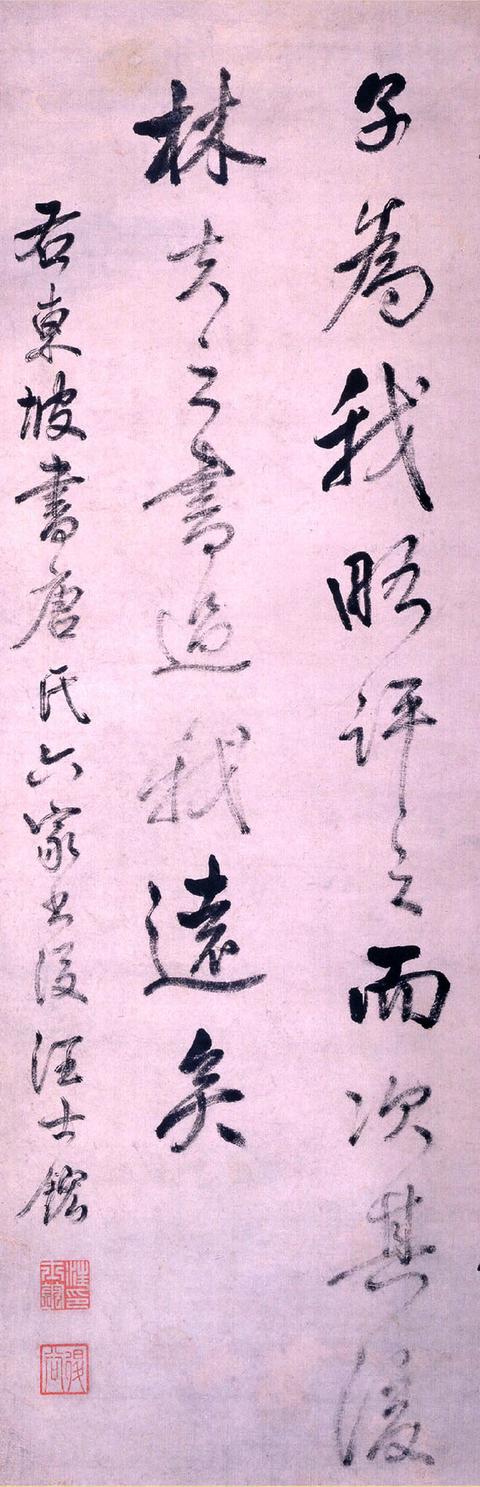 子為我略評之而次其後
林夫之書過我遠矣
右東坡書唐氏六家书後汪士鋐
汪印士鋐